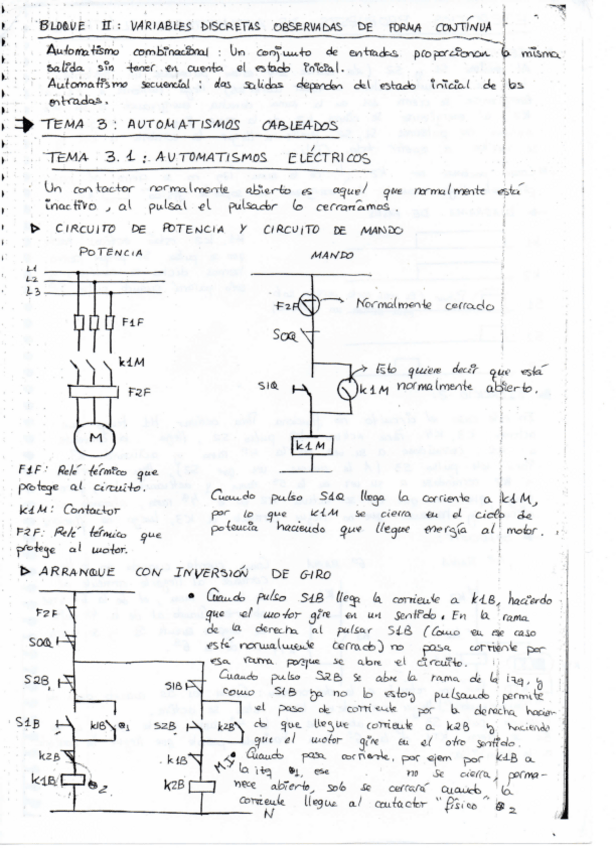 BLOQUE II: VARIABLES DISCRETAS OBSERVADAS DE FORMA CONTÍNUA
Automatismo combinacional: Un conjunto de entradas proporcionan la misma
salida sin tener en cuenta el estado inicial.
Automatismo secuencial: las salidas dependen del estado inicial de las
entradas.
TEMA 3: AUTOMATISMOS CABLEADOS
TEMA 3.1: AUTOMATISMOS ELÉCTRICOS
Un contactor normalmente abierto es aquel que normalmente está
inactivo, al pulsal el pulsador lo cerraríamos.
CIRCUITO DE POTENCIA Y CIRCUITO DE MANDO
POTENCIA
L1
L2
L3
F1F
K1M
F2F
M
F1F: Relé térmico que
protege al circuito.
K1M: Contactor
F2F: Relé térmico que
protege al motor.
MANDO
F2F
Normalmente cerrado
S0Q
Esto quiere decir que está
normalmente abierto.
S1Q
K1M
K1M
Cuando pulso S1Q llega la corriente a K1M,
por lo que K1M se cierra en el ciclo de
potencia haciendo que llegue energía al motor.
ARRANQUE CON INVERSIÓN DE GIRO
F2F
S0Q
S2B
S1B
S1B
K1B
1
S2B
K2B
K2B
K1B
K1B
2
K2B
N
Cuando pulso S1B llega la corriente a K1B, haciendo
que el motor gire en un sentido. En la rama
de la derecha al pulsar S1B (Como en ese caso
está normalmente cerrado) no pasa corriente por
esa rama porque se abre el circuito.
Cuando pulso S2B se abre la rama de la izq. y
como S1B ya no lo estoy pulsando permite
el paso de corriente por la derecha hacien-
do que llegue corriente a K2B y haciendo
que el motor gire en el otro sentido.
Cuando pasa corriente, por ejem por K1B a
la izq 1, ese no se cierra, perma-
nece abierto, solo se cerrará cuando la
corriente llegue al contactor "físico" 2